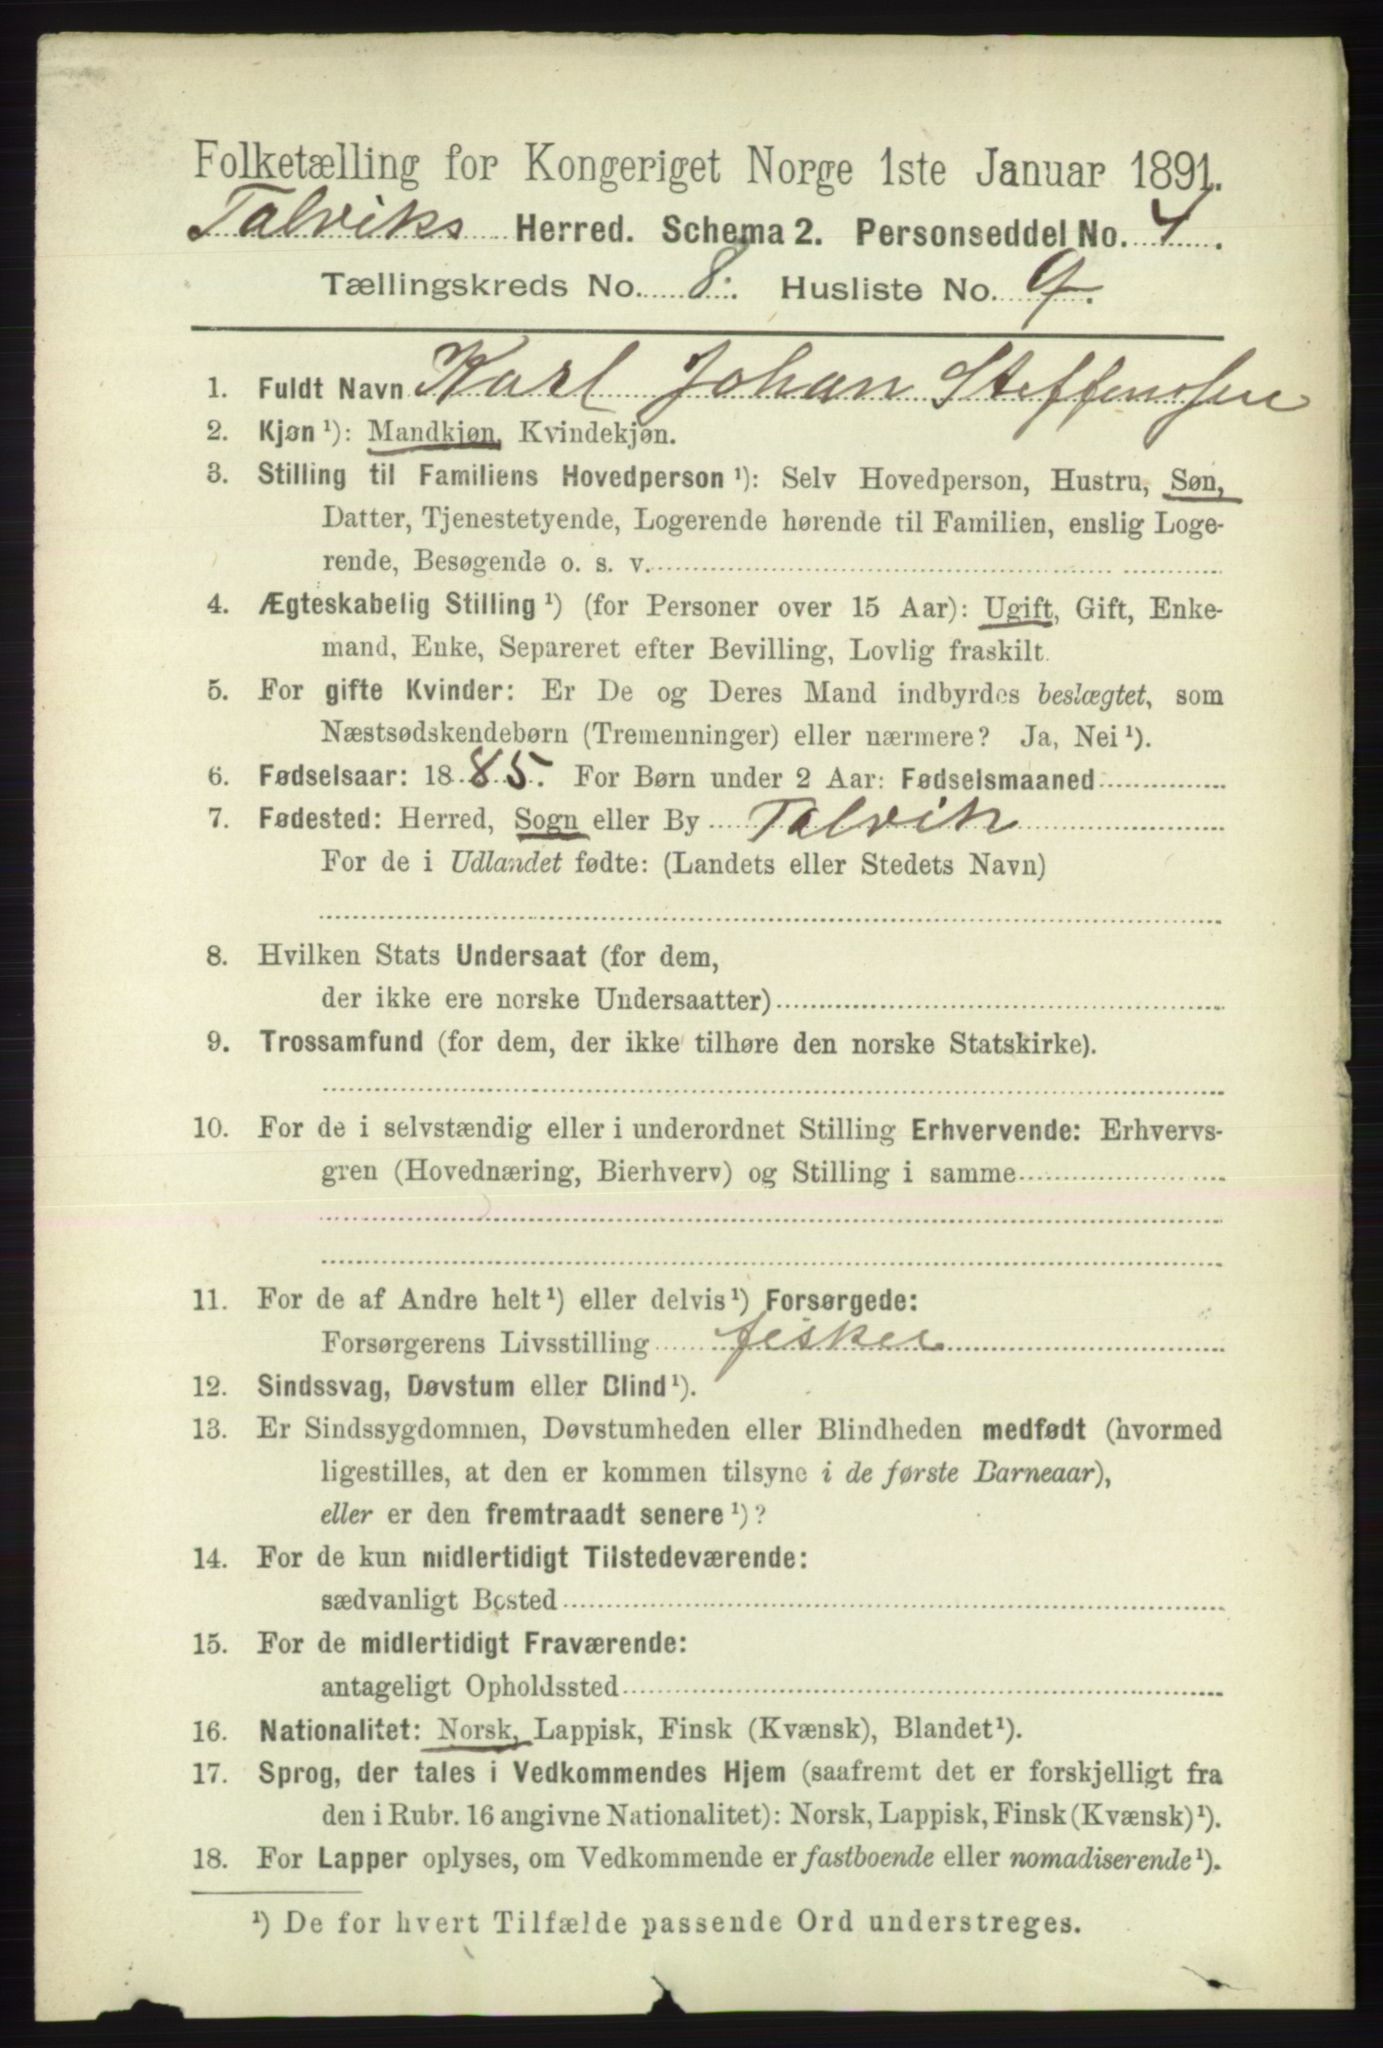 Folketælling for Kongeriget Norge 1ste Januar 1891.
Talviks Herred. Schema 2. Personseddel No. 4.
Tællingskreds No. 8. Husliste No. 9.
1. Fuldt Navn Karl Johan Steffensen
2. Kjøn ¹): Mandkjøn, Kvindekjøn.
3. Stilling til Familiens Hovedperson ¹): Selv Hovedperson, Hustru, Søn,
Datter, Tjenestetyende, Logerende hørende til Familien, enslig Loge-
rende, Besøgende o. s. v.
4. Ægteskabelig Stilling ¹) (for Personer over 15 Aar): Ugift, Gift, Enke-
mand, Enke, Separeret efter Bevilling, Lovlig fraskilt.
5. For gifte Kvinder: Er De og Deres Mand indbyrdes beslægtet, som
Næstsødskendebørn (Tremenninger) eller nærmere? Ja, Nei ¹).
6. Fødselsaar: 1885. For Børn under 2 Aar: Fødselsmaaned
7. Fødested: Herred, Sogn eller By Talvik
For de i Udlandet fødte: (Landets eller Stedets Navn)
8. Hvilken Stats Undersaat (for dem,
der ikke ere norske Undersaatter)
9. Trossamfund (for dem, der ikke tilhøre den norske Statskirke).
10. For de i selvstændig eller i underordnet Stilling Erhvervende: Erhvervs-
gren (Hovednæring, Bierhverv) og Stilling i samme
11. For de af Andre helt ¹) eller delvis ¹) Forsørgede:
Forsørgerens Livsstilling fisker
12. Sindssvag, Døvstum eller Blind ¹).
13. Er Sindssygdommen, Døvstumheden eller Blindheden medfødt (hvormed
ligestilles, at den er kommen tilsyne i de første Barneaar),
eller er den fremtraadt senere ¹)?
14. For de kun midlertidigt Tilstedeværende:
sædvanligt Bosted
15. For de midlertidigt Fraværende:
antageligt Opholdssted
16. Nationalitet: Norsk, Lappisk, Finsk (Kvænsk), Blandet ¹).
17. Sprog, der tales i Vedkommendes Hjem (saafremt det er forskjelligt fra
den i Rubr. 16 angivne Nationalitet): Norsk, Lappisk, Finsk (Kvænsk) ¹).
18. For Lapper oplyses, om Vedkommende er fastboende eller nomadiserende ¹).
¹) De for hvert Tilfælde passende Ord understreges.